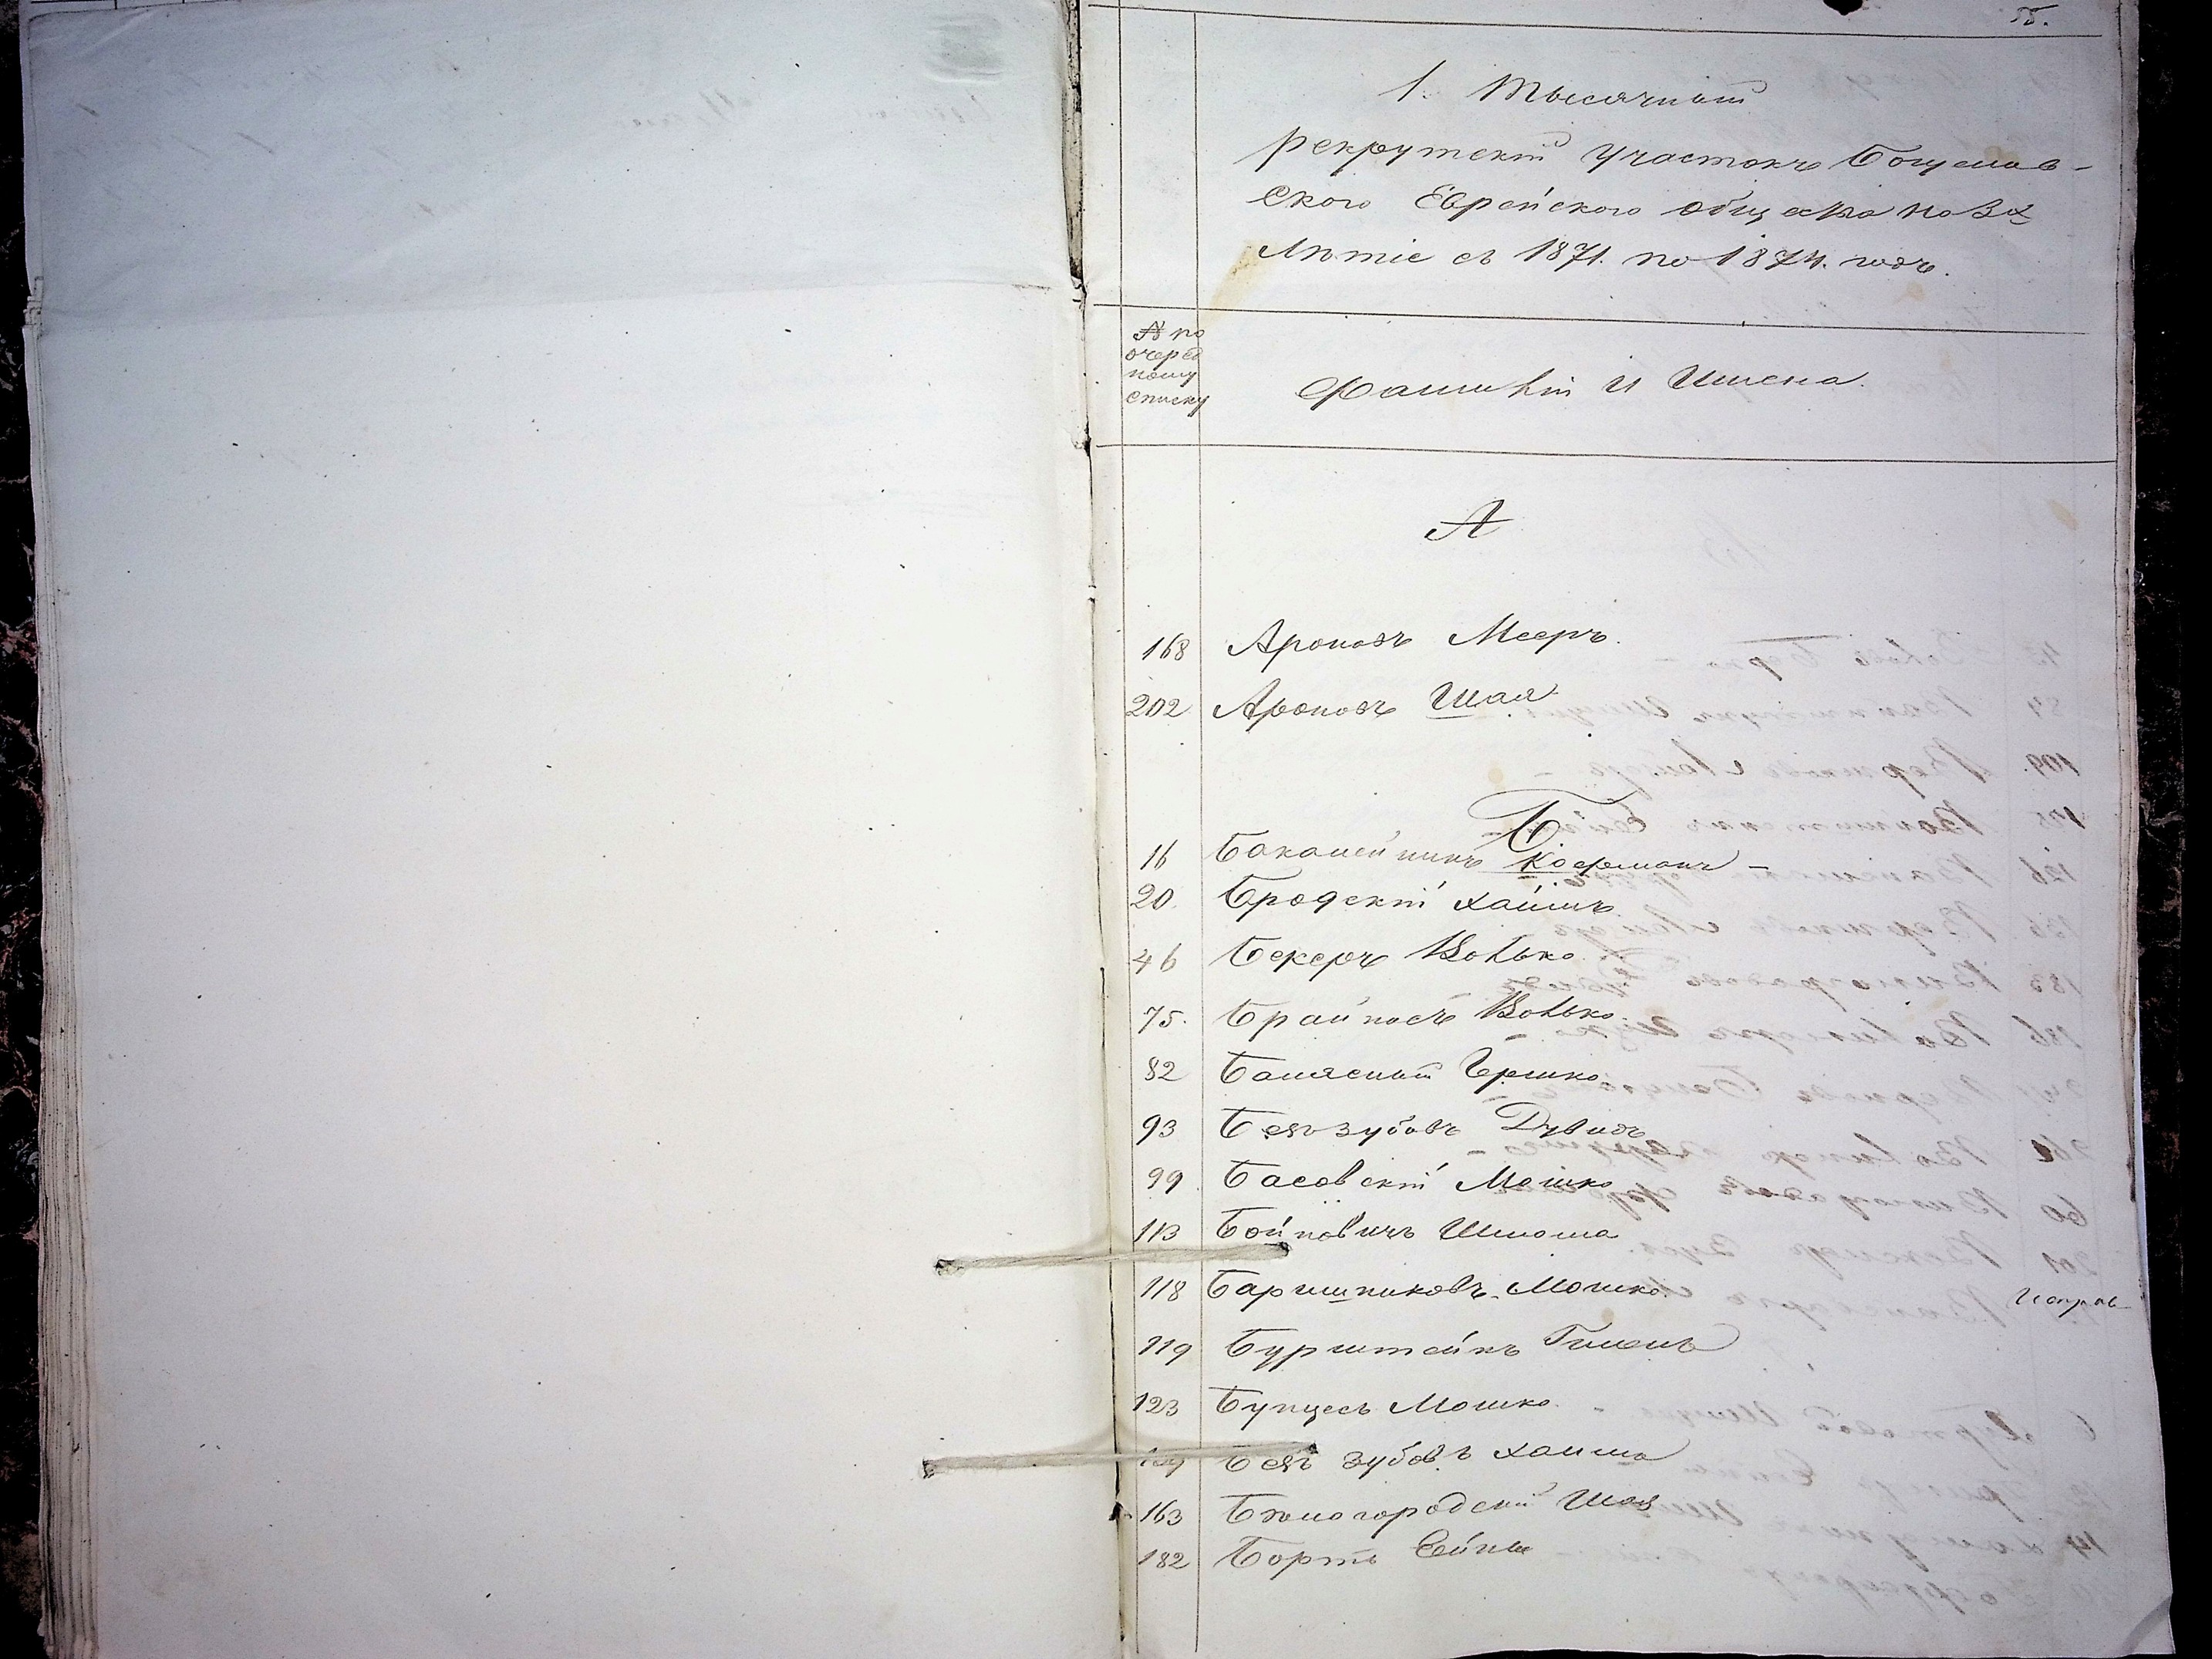 55.
1. Тысячный
рекрутскій Участокъ Богуслав-
ского Еврейского Общества на 3х
лѣтіе съ 1871. по 1874. годъ.
№ по
очеред
ному
списку
Фамилій и Имена.
А
168 Ароновъ Мееръ.
202 Ароновъ Шая
Б
16 Бакалейникъ Кофманъ –
20. Бродскій Хаимъ.
46 Бекеръ Волько.
75. Брайносъ Волько.
82 Балясный Гершко
93 Безъзубовъ Дувидъ
99 Басовскій Мошко
113 Бойновичъ Шлиома
118 Баришниковъ Мошко.
Исправ
119 Бурштейнъ Гилель
123 Бунцесъ Мошко.
Безъ зубовъ Хаима
163 Бѣлогородскій Шая
182 Бортъ Ейны